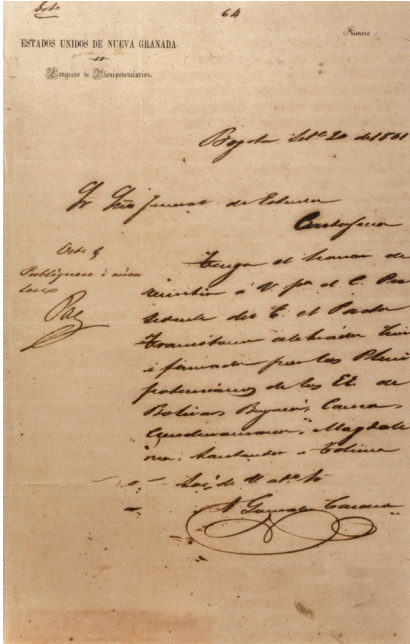 64
Número
ESTADOS UNIDOS DE NUEVA GRANADA.
Congreso de Plenipotenciarios.
Bogotá Set.e 20 de 1861
Sr. Srio Jeneral de Estado
Cartajena
Tengo el honor de
remitir á U pa el C. Pre
sidente del E. el Pacto
Transitorio celebrado
i firmado por los Pleni
potenciarios de los EE. de
Bolívar, Boyacá, Cauca,
Cundinamarca, Magdale
na, Santander i Tolima
Soi de U at.o s.
Octe 9
Publíquese
Paz